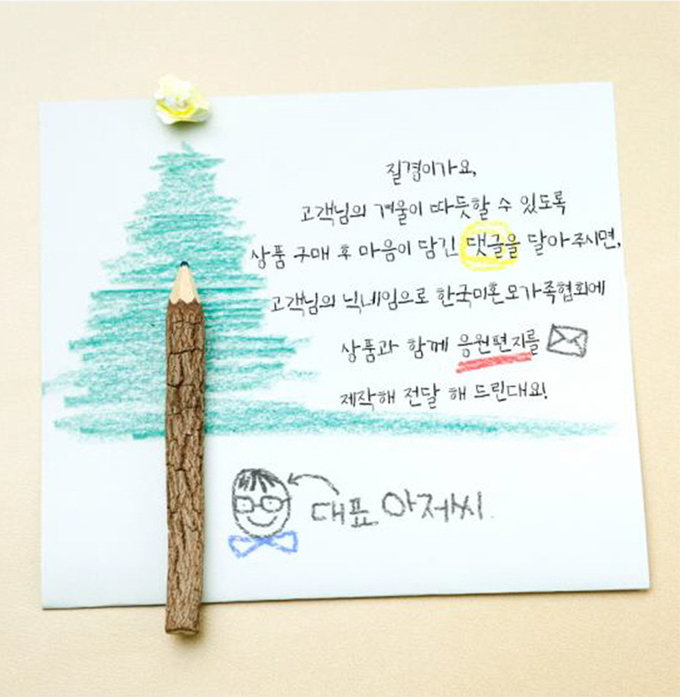 질경이가요,
고객님의 겨울이 따뜻할 수 있도록
상품 구매 후 마음이 담긴 댓글을 달아주시면,
고객님의 닉네임으로 한국미혼모가족협회에
상품과 함께 응원편지를
제작해 전달 해 드린대요!
대표 아저씨.